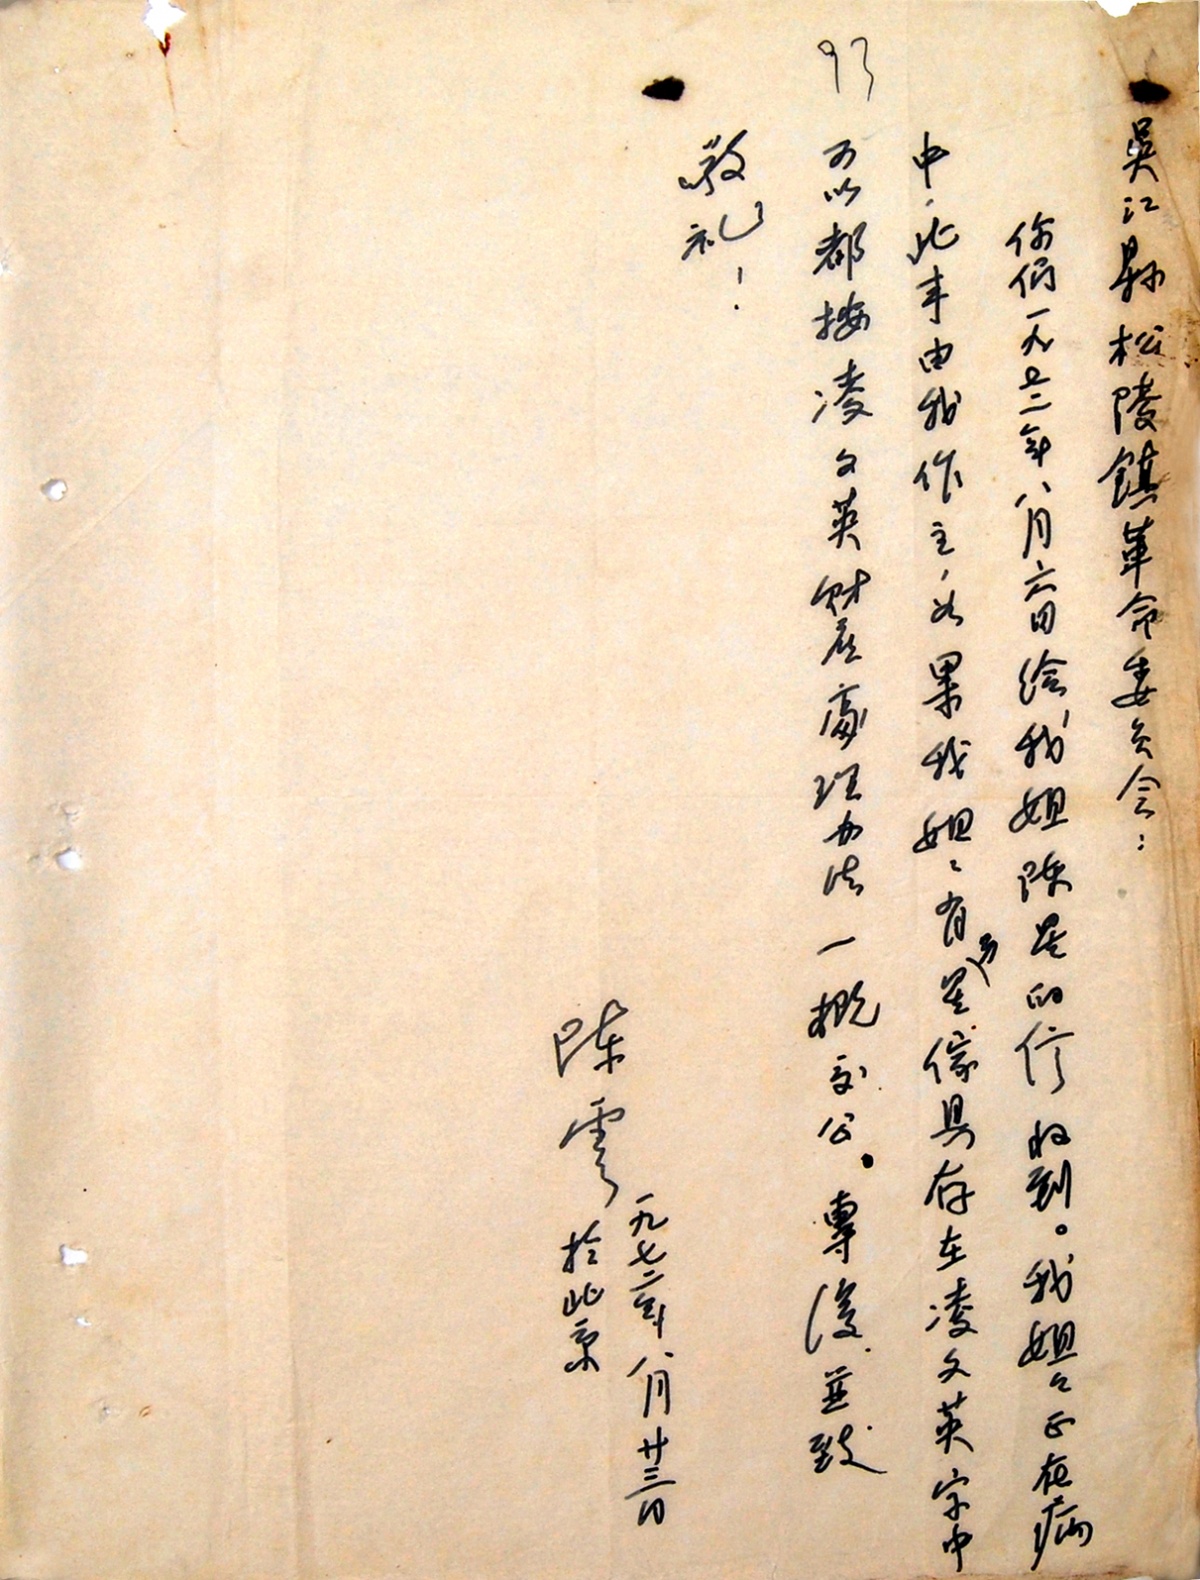 吴江縣松陵鎮革命委员会：
你们一九七二年八月六日给我姐陈星的信收到。我姐々正在病
中，此事由我作主，如果我姐々有另星傢具存在凌文英家中
可以都按凌文英财产處理办法一概交公。專復並致
敬礼！
一九七二年八月廿三日
陈雲於北京
93